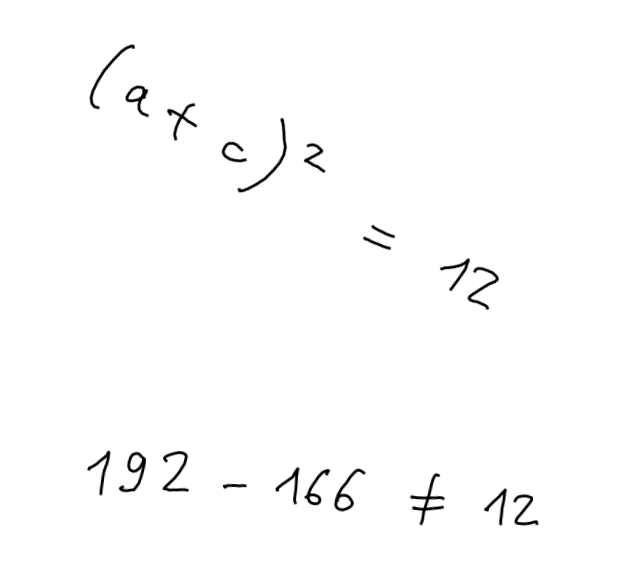 (a + c)² = 12
192 - 166 ≠ 12